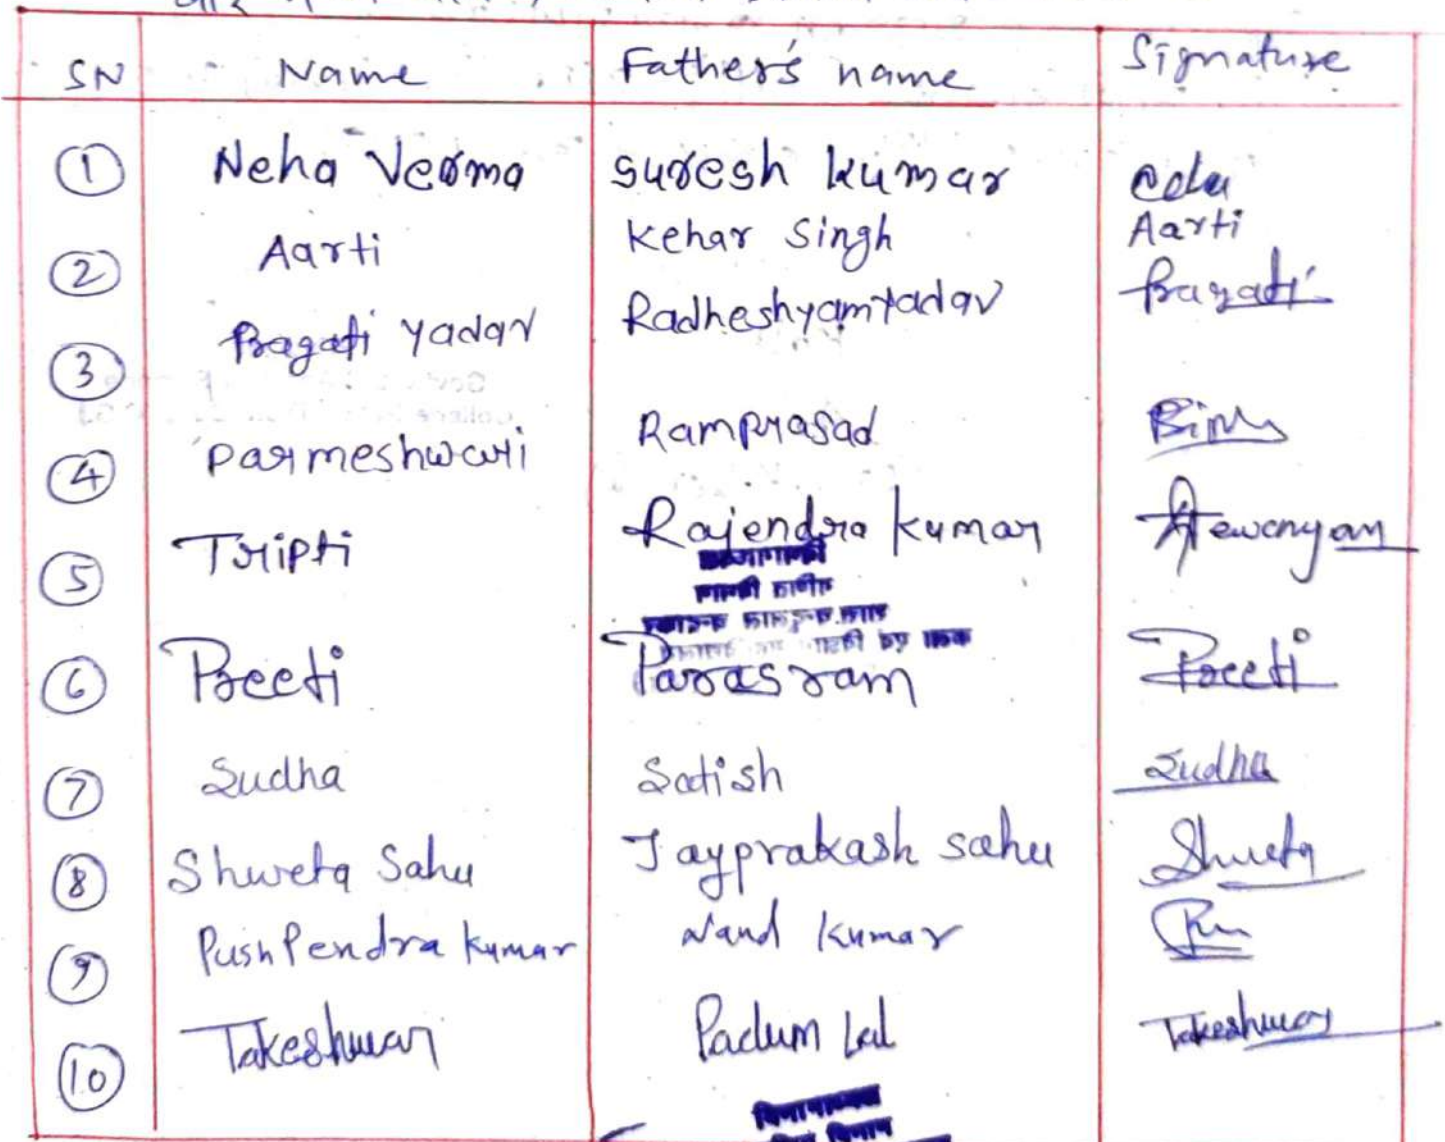 SN Name Father's name Signature
1 Neha Verma Suresh Kumar
2 Aarti Kehar Singh Aarti
3 Pragati Yadav Radheshyam Yadav Pragati
4 Parmeshwari Ramprasad
5 Tripti Rajendra Kumar
6 Preeti Parasram Preeti
7 Sudha Satish Sudha
8 Shweta Sahu Jayprakash Sahu Shweta
9 Pushpendra Kumar Nand Kumar
10 Takeshwar Padum Lal Takeshwar